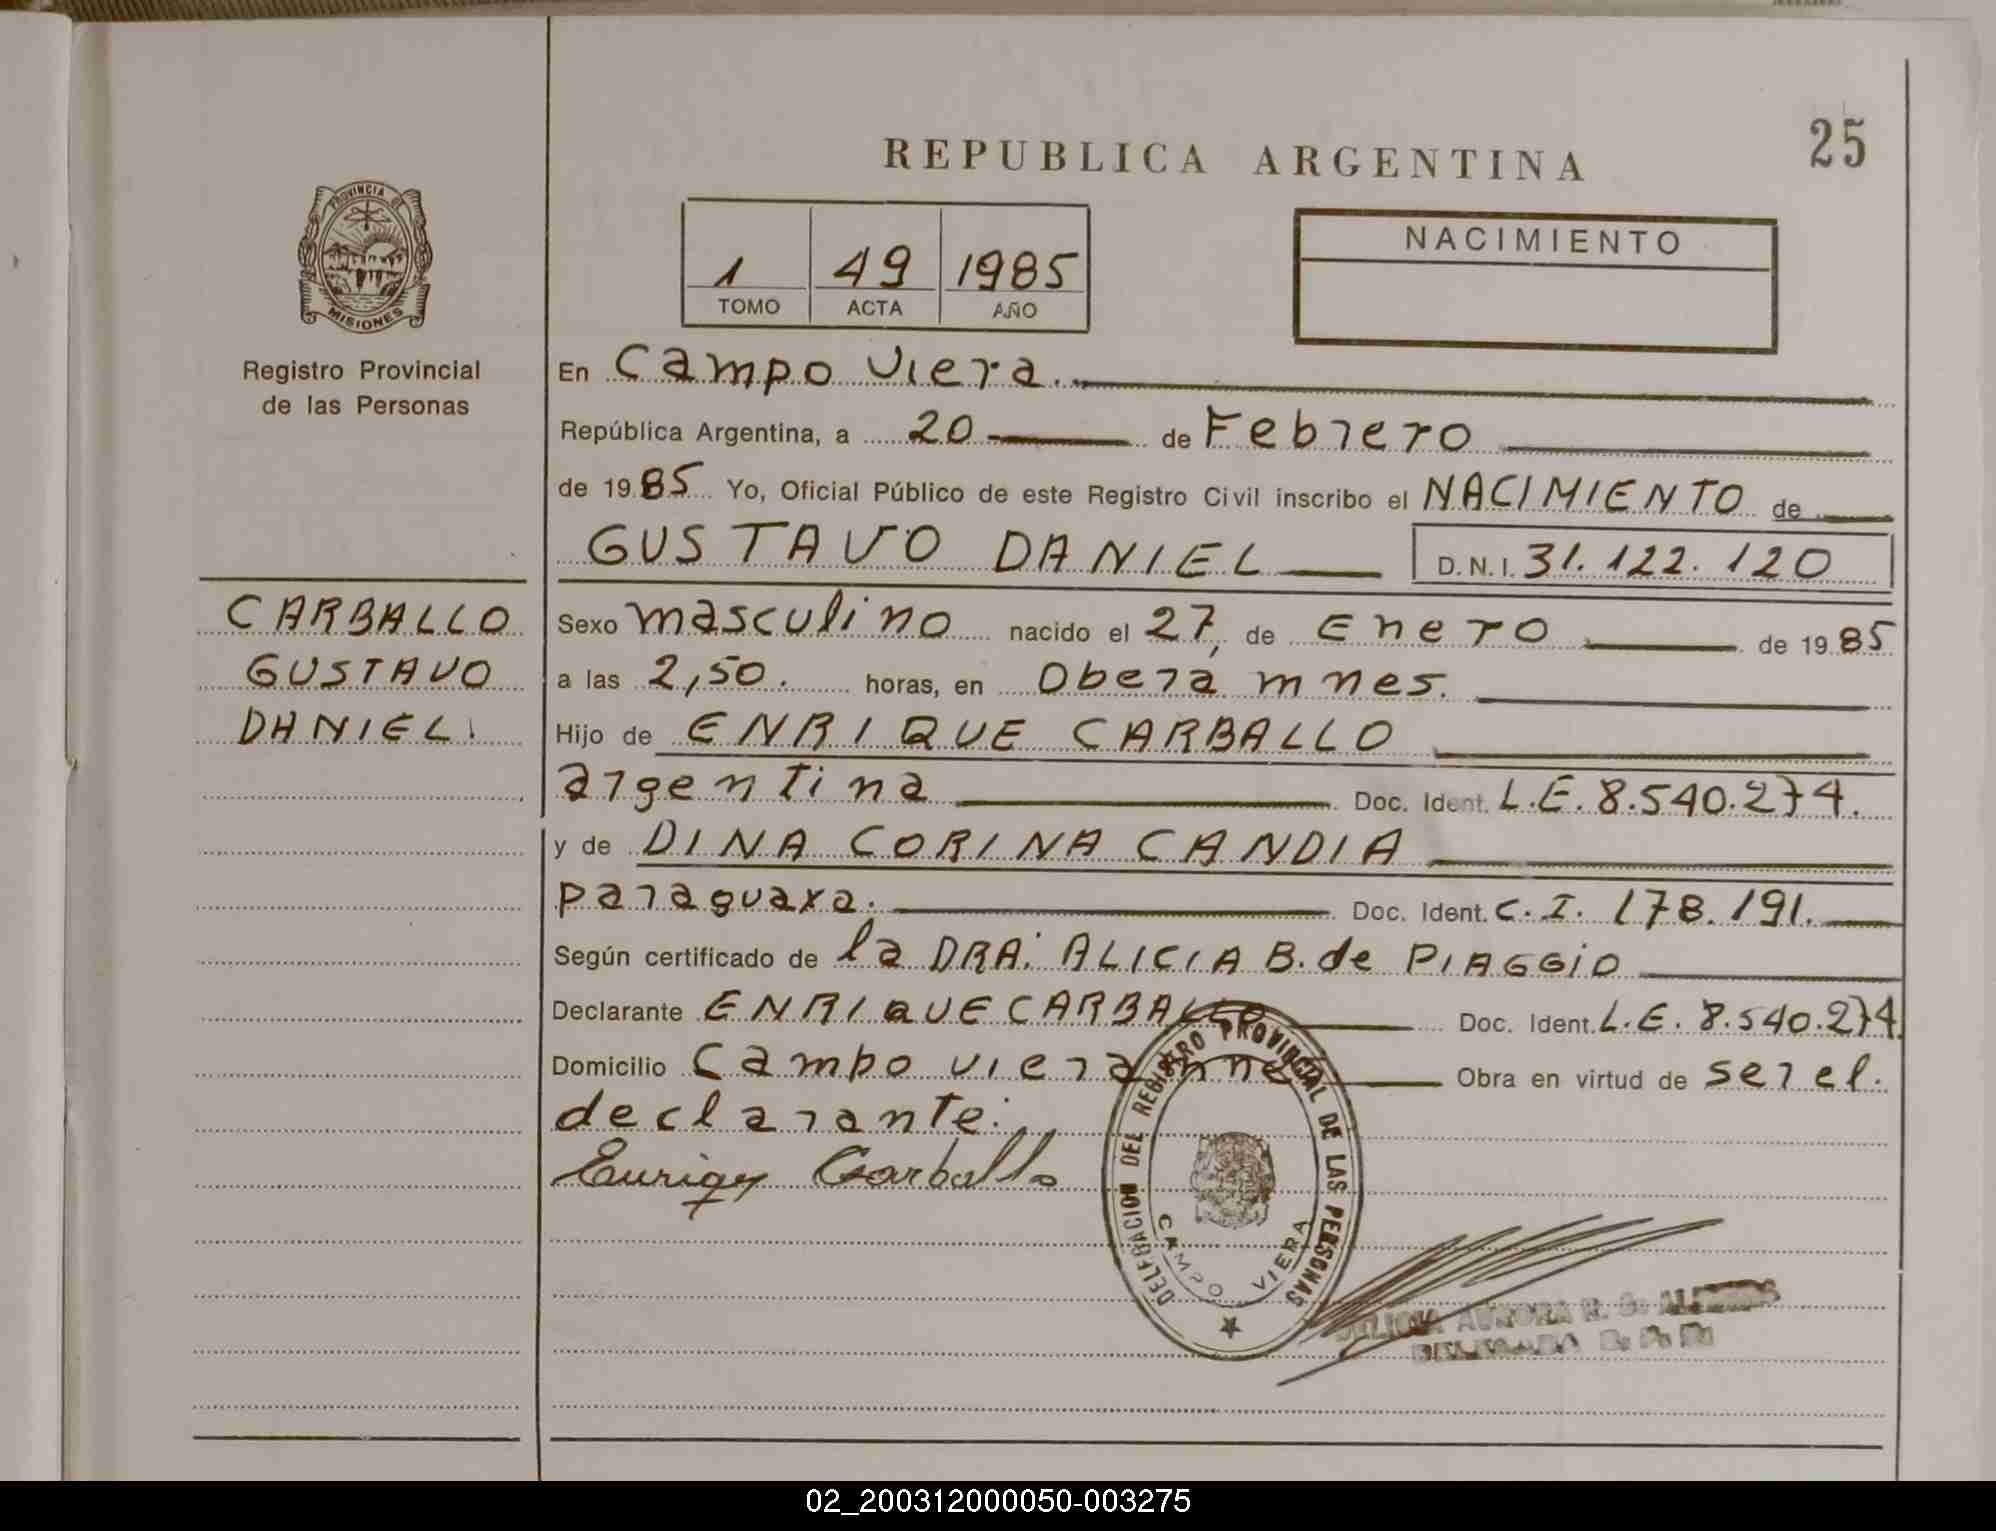 25
REPUBLICA ARGENTINA
PROVINCIA DE
MISIONES
Registro Provincial
de las Personas
1 49 1985
TOMO ACTA AÑO
NACIMIENTO
En Campo Viera.
República Argentina, a 20 de Febrero
de 1985 Yo, Oficial Público de este Registro Civil inscribo el NACIMIENTO de
GUSTAVO DANIEL D.N.I. 31.122.120
CARBALLO
GUSTAVO
DANIEL.
Sexo masculino nacido el 27, de Enero de 1985
a las 2,50. horas, en Oberá mnes.
Hijo de ENRIQUE CARBALLO
argentina Doc. Ident. L.E. 8.540.274.
y de DINA CORINA CANDIA
paraguaxa. Doc. Ident. C.I. 178.191.
Según certificado de la DRA. ALICIA B. de PIAGGIO
Declarante ENRIQUE CARBALLO Doc. Ident. L.E. 8.540.274.
Domicilio Campo viera mnes Obra en virtud de ser el.
declarante.
Enrique Carballo
DELEGACION DEL REGISTRO PROVINCIAL DE LAS PERSONAS
CAMPO VIERA
AURORA R.
02_200312000050-003275